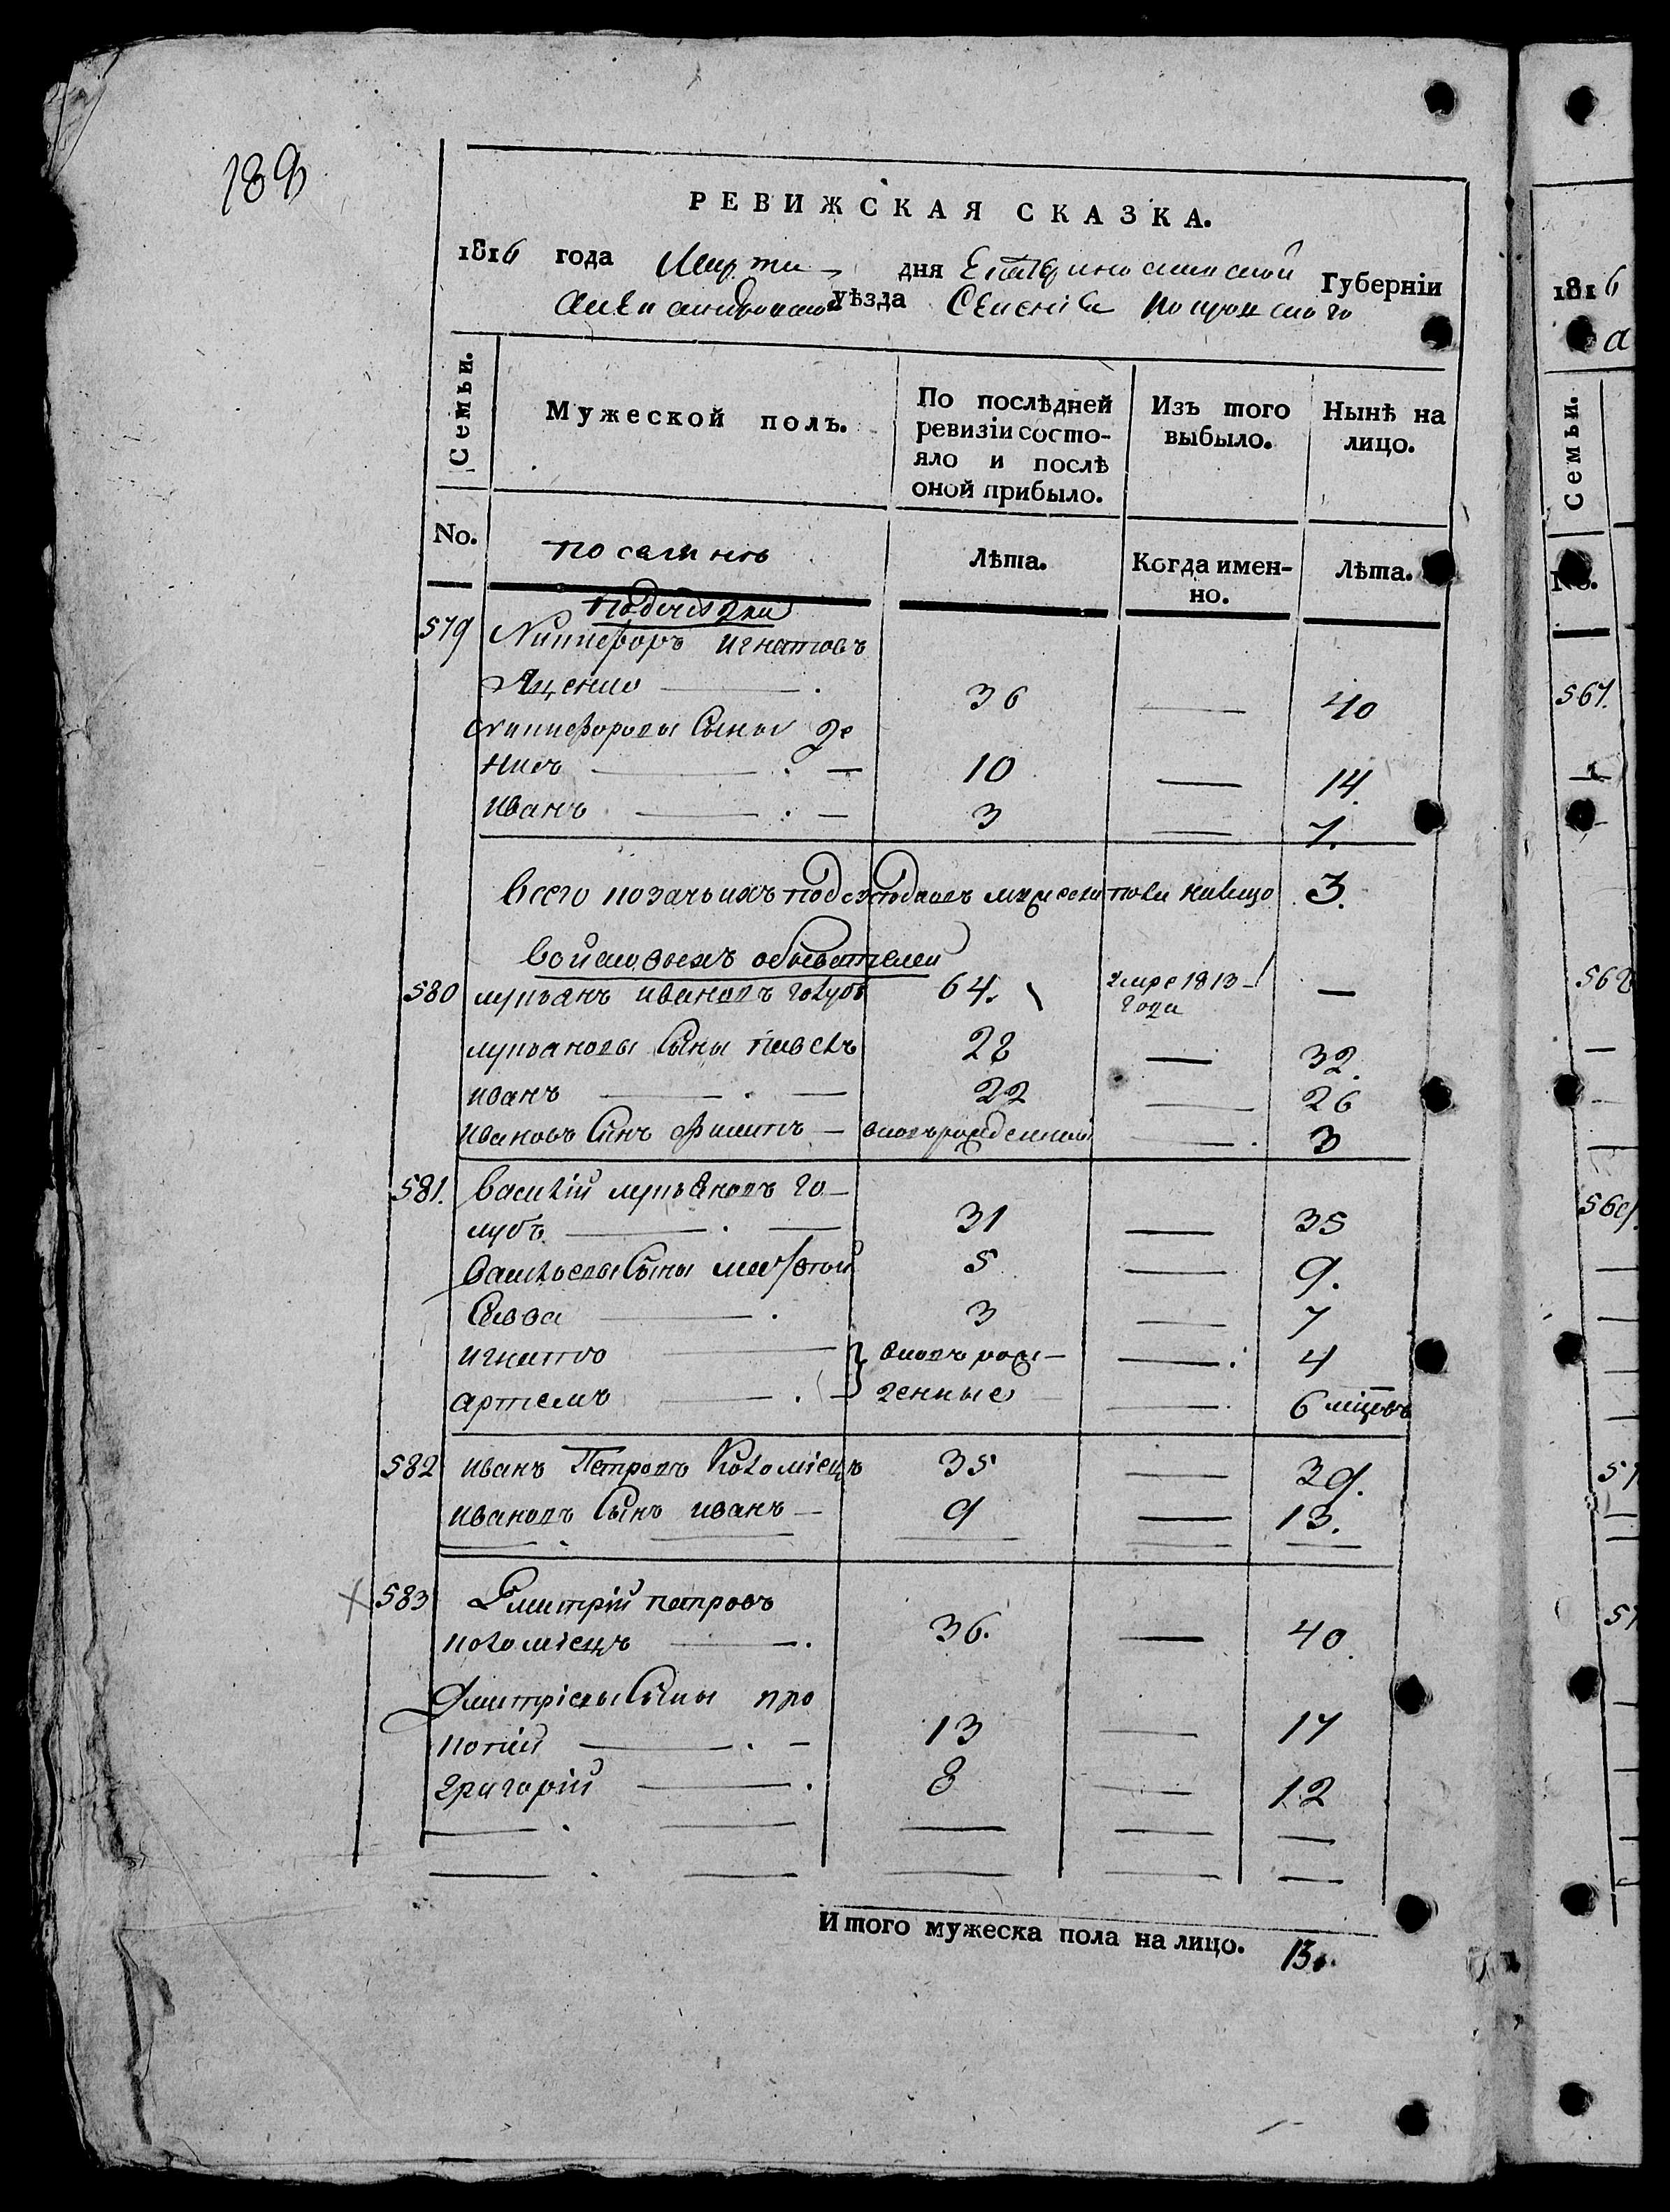 189
РЕВИЖСКАЯ СКАЗКА.
1816 года Марта дня Екатеринославской Губерніи
александровскаго уѣзда Селенія покровскаго
Семьи.
Мужеской полъ.
По послѣдней ревизіи состояло и послѣ оной прибыло.
Изъ того выбыло.
Нынѣ на лицо.
No.
Лѣта.
Когда именно.
Лѣта.
Подсуседки
579 Никифоръ игнатовъ
Яценко 36 — 40
Никифоровы Сыны де
нисъ 10 — 14.
иванъ 3 — 7.
Всего козачьихъ подсуседковъ мужеска пола налицо 3.
Войсковыхъ обывателей
580 лукьянъ ивановъ голубъ 64. умре 1813 —
года
лукьяновы Сыны павелъ 28 — 32.
иванъ 22 — 26
ивановъ Сынъ филипъ — вновьрожденный — 3
581. василій лукьяновъ го—
лубъ 31 — 35
васильевы Сыны 5 — 9.
Савва 3 — 7
игнатъ вновь рож— — 4
артемъ денные — 6 мцовъ
582 иванъ Петровъ Коломіецъ 35 — 39.
ивановъ Сынъ иванъ — 9 — 13.
583 Дмитрій петровъ
коломіецъ 36. — 40.
Дмитріевы Сыны про
копій 13 — 17
григорій 8 — 12
Итого мужеска пола на лицо. 13.
1816
а
Семьи.
No.
567.
568
569.
57
57